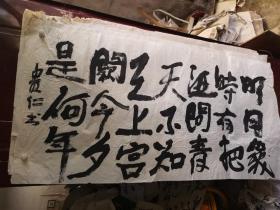 明月幾
時有把
酒問青
天不知
天上宮
闕今夕
是何年